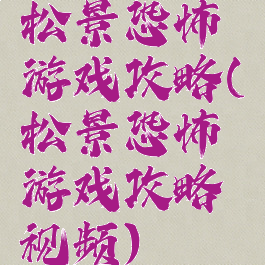 松景恐怖
游戏攻略(
松景恐怖
游戏攻略
视频)